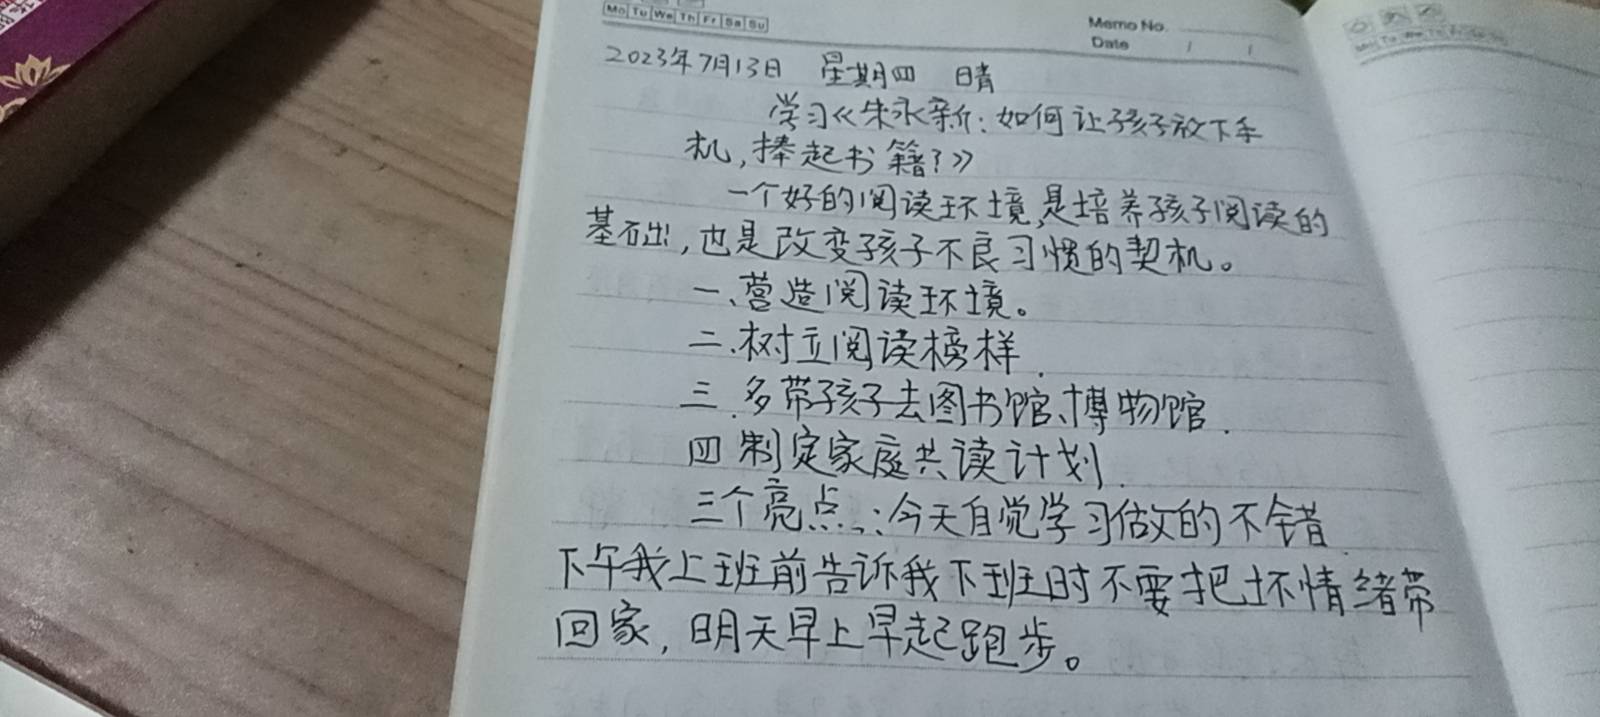 Mo Tu We Th Fr Sa Su
Memo No.
Date / /
2023年7月13日 星期四 晴
学习《朱永新:如何让孩子放下手
机,捧起书籍?》
一个好的阅读环境,是培养孩子阅读的
基础,也是改变孩子不良习惯的契机。
一、营造阅读环境。
二、树立阅读榜样.
三.多带孩子去图书馆、博物馆.
四 制定家庭共读计划.
三个亮点:今天自觉学习做的不错.
下午我上班前告诉我下班时不要把坏情绪带
回家,明天早上早起跑步。
Mo Tu We Th Fr Sa Su